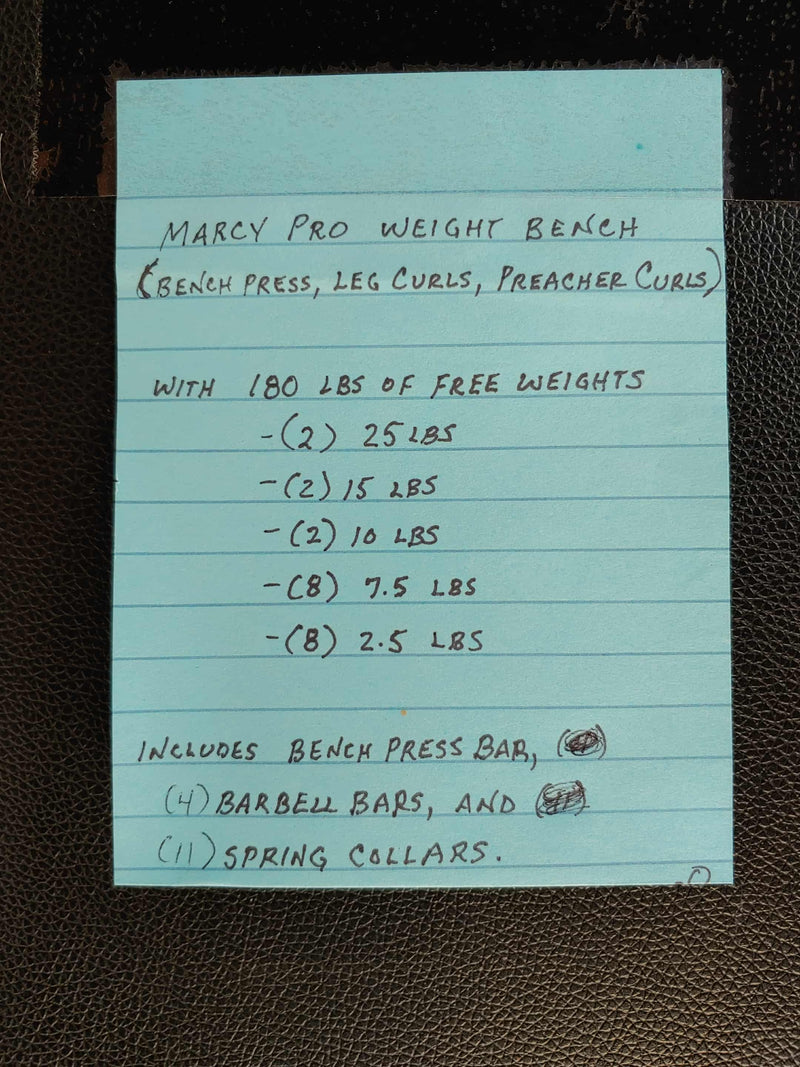 MARCY PRO WEIGHT BENCH
(BENCH PRESS, LEG CURLS, PREACHER CURLS)
WITH 180 LBS OF FREE WEIGHTS
-(2) 25 LBS
-(2) 15 LBS
-(2) 10 LBS
-(8) 7.5 LBS
-(8) 2.5 LBS
INCLUDES BENCH PRESS BAR,
(4) BARBELL BARS, AND
(11) SPRING COLLARS.